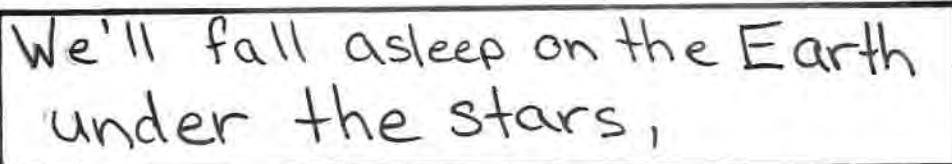 We'll fall asleep on the Earth
under the stars,